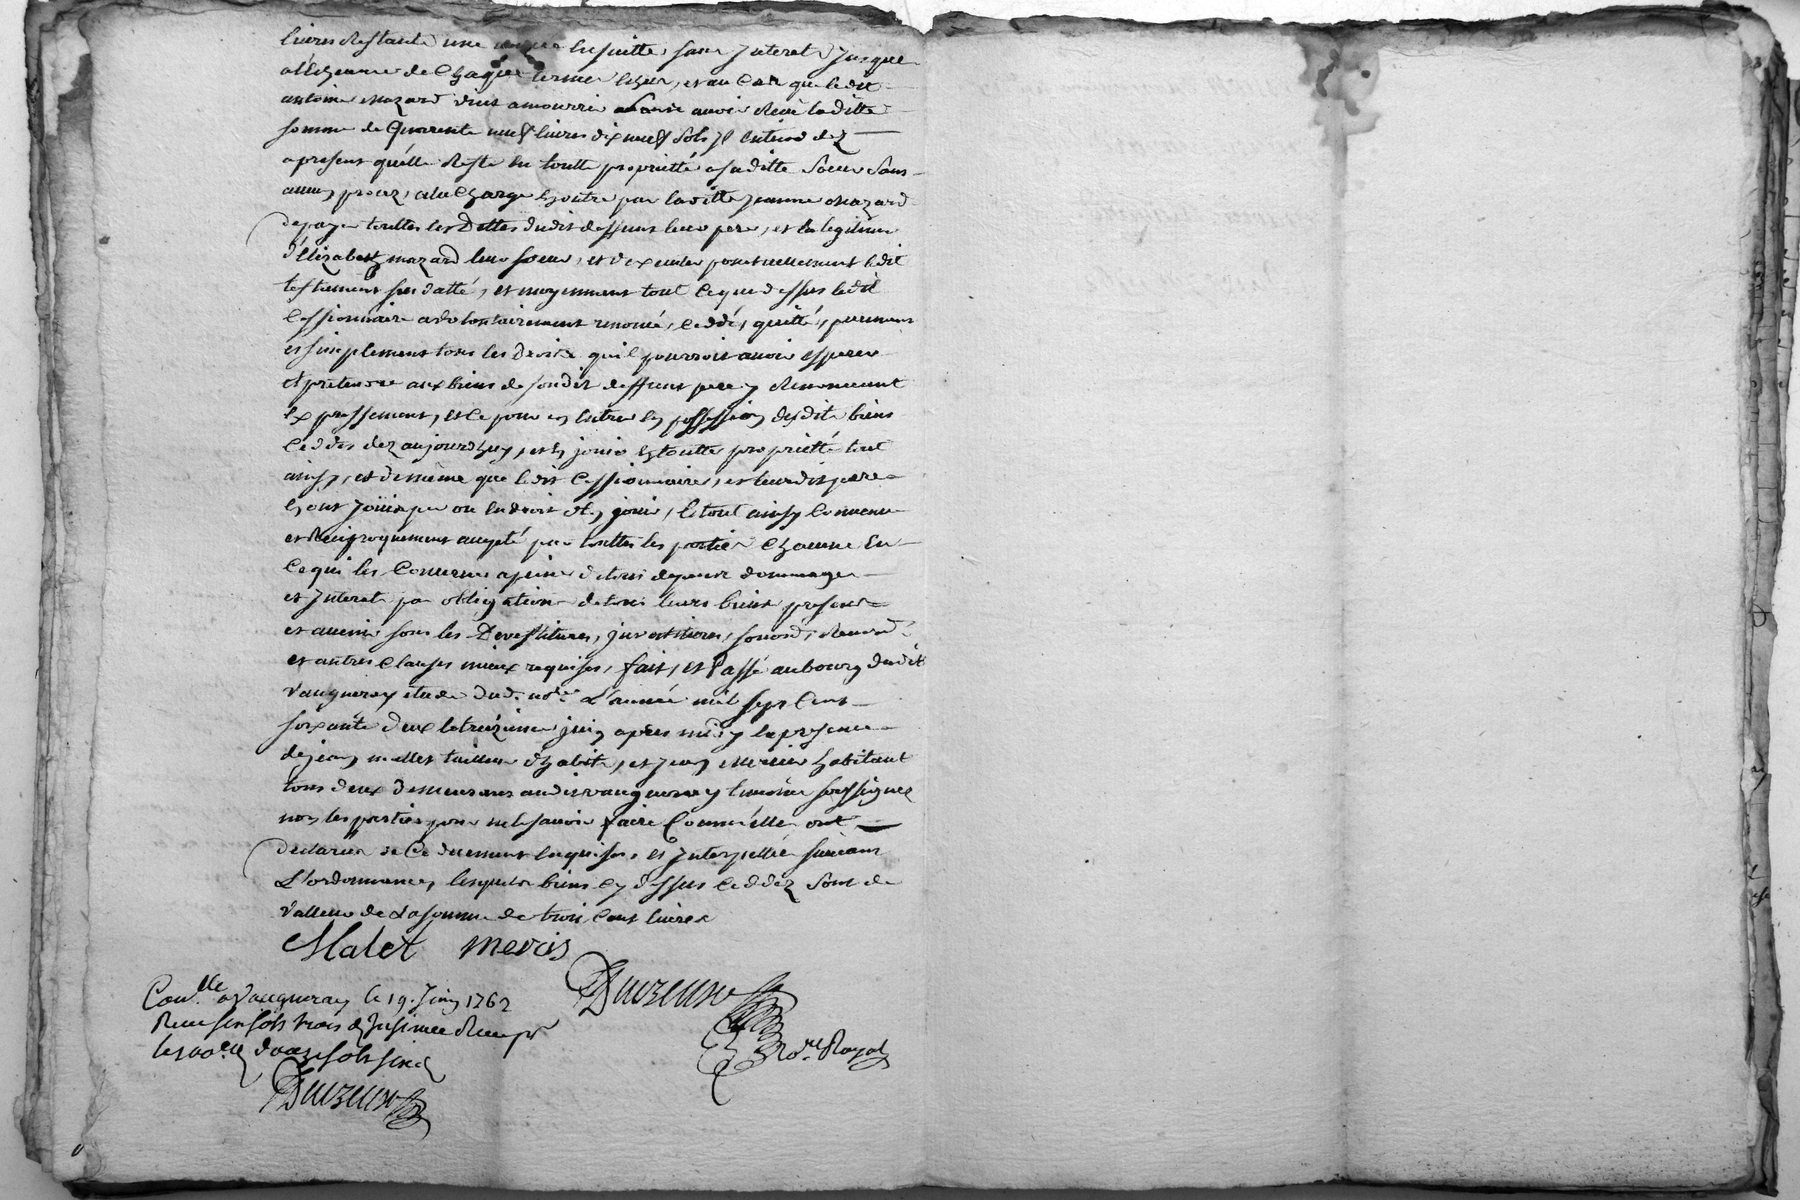 livres restante une année ensuitte, sans Interet Jusque
a l'Echeance de Chaque terme Echeu, et au Cas que ledit
antoine mazard vint amourrir sans avoir Receu laditte
somme de Quarente neuf livres dix neuf sols Il Entend dez
apresent quelle Reste en toutte proprietté a saditte Soeur Sans
aucun procez, ala Charge En outre par laditte Jeanne mazard
de payer touttes les Dettes dudit deffunt leur pere, et la legitime
d'Elizabeth mazard leur soeur, et d'executer ponctuellement ledit
testament sus datté, et moyennant tout Ce que dessus ledit
Cessionnaire a volontairement renoncé, Ceddé, quitté, purement
et simplement tous les droits qu'il pourroit avoir esperer
et pretendre aux biens de sondit deffunt pere y Renonceant
Expressement, et Ce pour en Entrer En possession desdits biens
Ceddés dez aujourdhuy, et En jouir En toutte proprietté tout
ainsy, et de même que ledit Cessionnaire, et leurdit pere
En ont Joüis, peu ou En droit d'En jouir, le tout ainsy Convenu
et Reciproquement accepté par touttes les parties Chacune En
Ce qui les Concerne a peine de tous depens dommages
et Interets par obligation de tous leurs biens presents
et avenir sous les Devestitures, investitures, soumons, Renons
et autres Clauses mieux requises, fait, et Passé au bourg dudit
Vaugneray étude dud. nore L'année mil sept Cent
soixante deux le treizieme juin apres midy En presence
de jean mallet tailleur d'habits, et jean merier habitant
tous deux demeurans audit vaugneray temoins soussignés
non les parties pour ne le savoir faire Comme elles ont
declarées de Ce duement Enquises, et Interpellées suivant
L'ordonnance, lesquels biens Cy dessus Ceddéz sont de
valleur de La somme de trois Cent livres
Malet meris
Duizeusr
Nore Royal
Conlle a Vaugneray le 19. Juin 1762
Receu six sols trois d Insinué Receu pr
le 100e d douze sols six d
Duizeusr